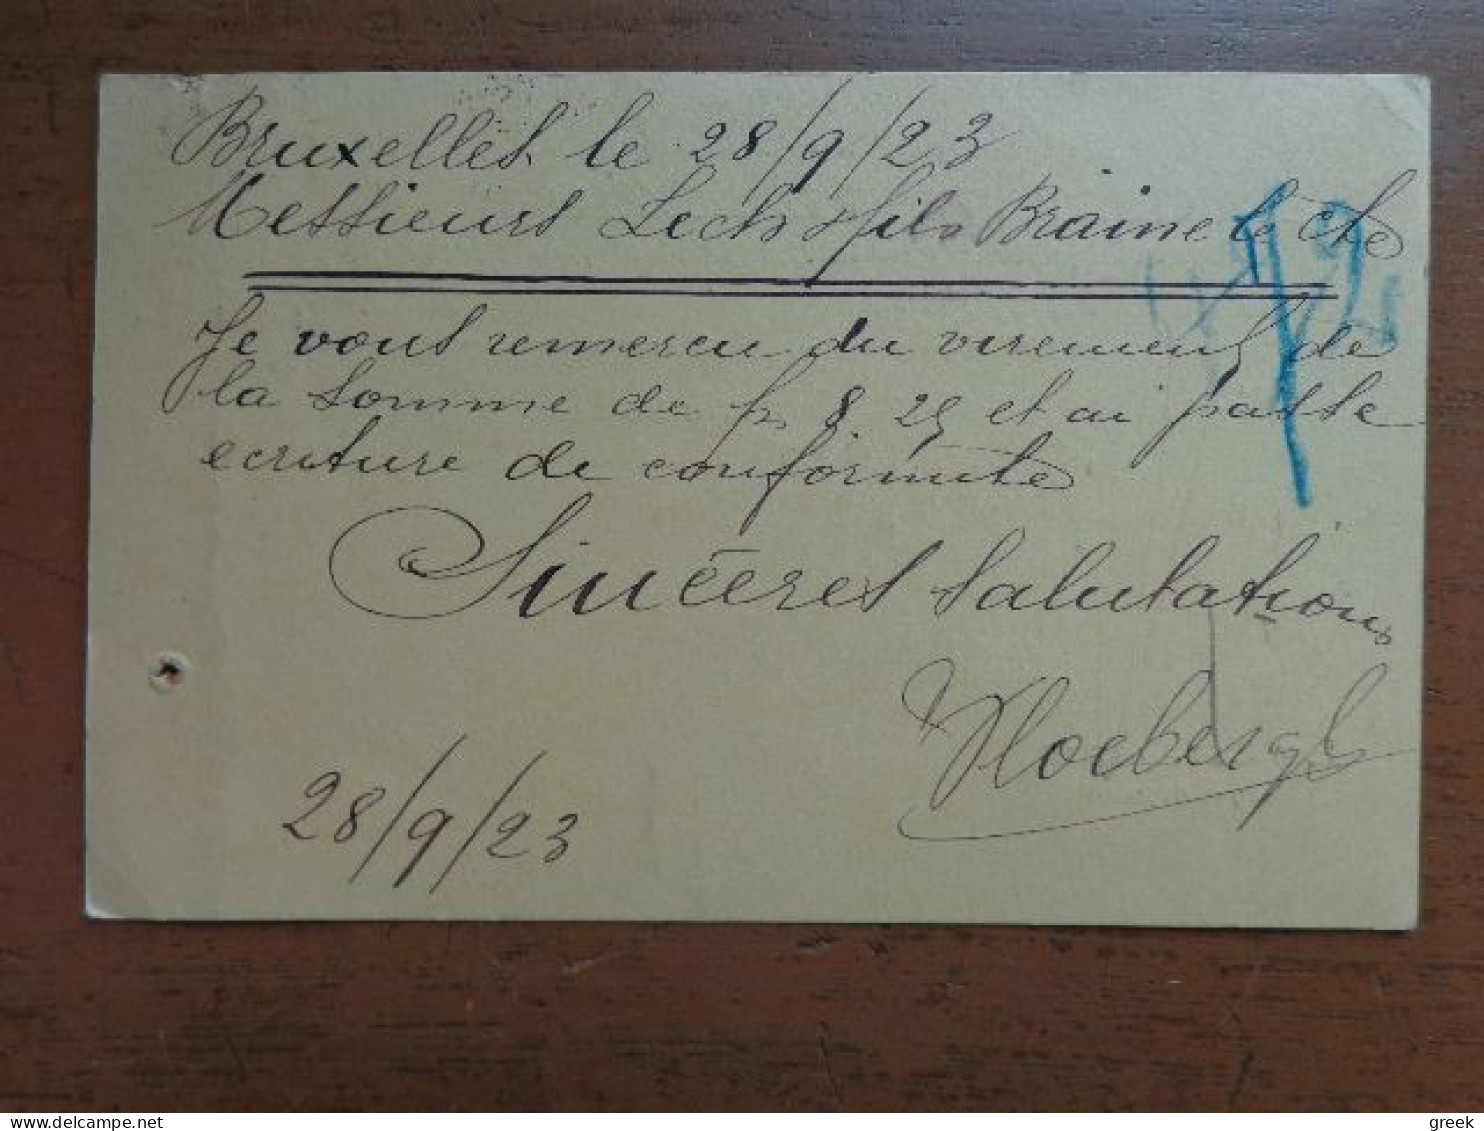 Bruxelles le 28/9/23
Messieurs Zech & fils Braine le Cte
Je vous remercie du virement de
la somme de fr 8.25 et ai passé
ecriture de conformite
Sincères Salutations
28/9/23
delcampe.net
greek